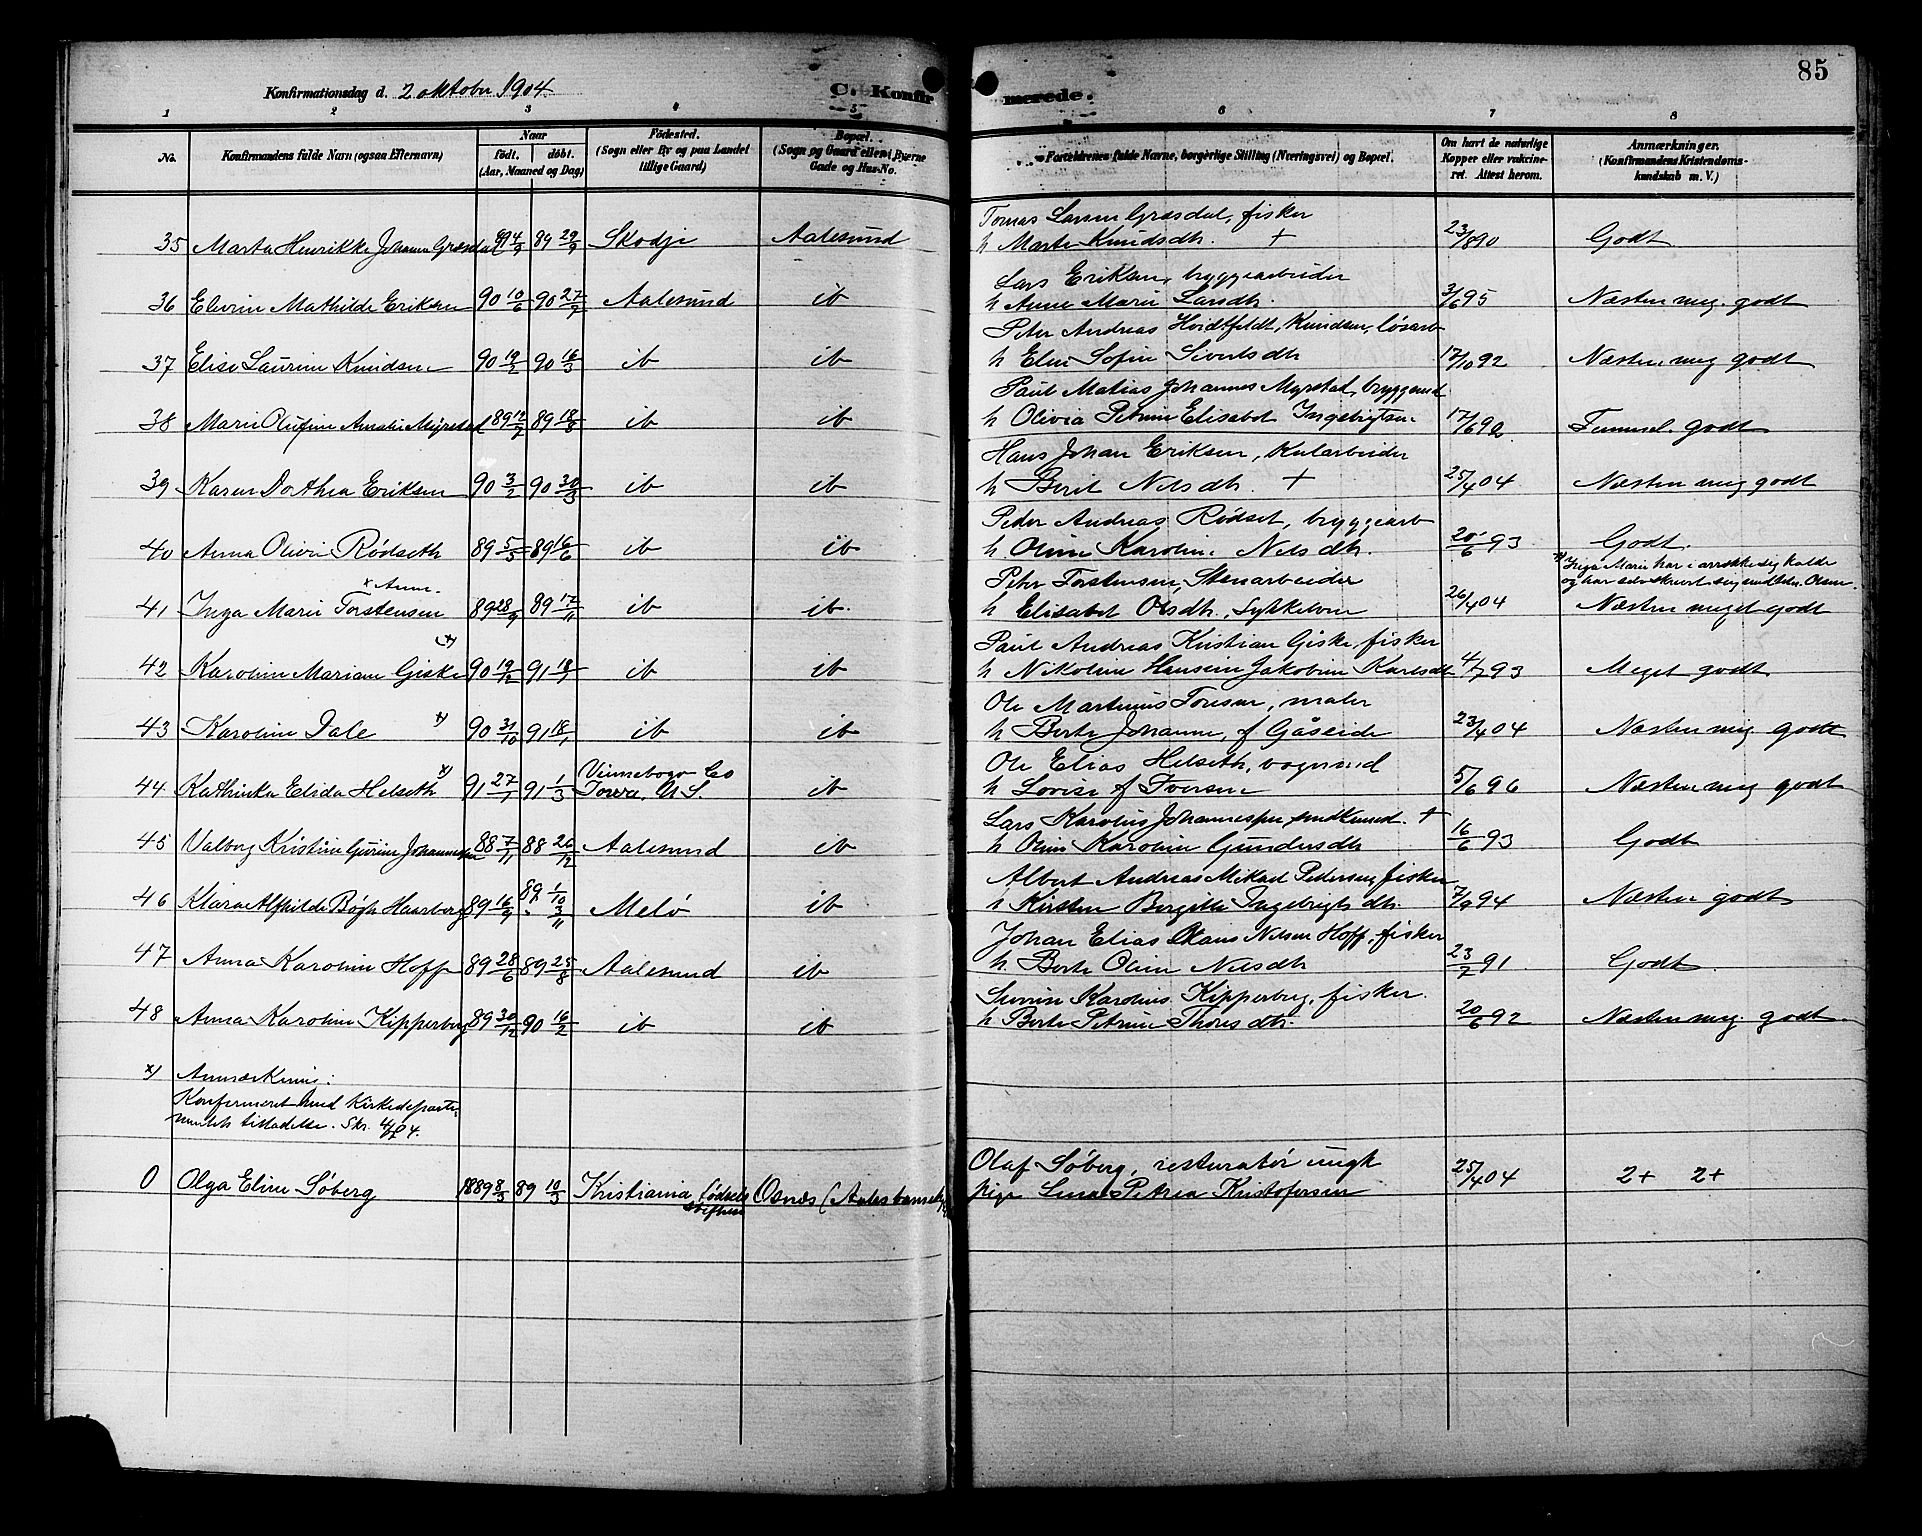 85
Konfirmationsdag d. 2 oktober 1904
C. Konfirmerede.
1 2 3 4 5 6 7 8
No. Konfirmandens fulde Navn (ogsaa Efternavn) Naar født. døbt. (Aar, Maaned og Dag) Fødested. (Sogn eller By og paa Landet tillige Gaard) Bopæl. (Sogn og Gaard eller i Byerne Gade og Hus-No. Forældrenes fulde Navne, borgerlige Stilling (Næringsvei) og Bopæl. Om havt de naturlige Kopper eller vakcineret. Attest herom. Anmærkninger. (Konfirmandens Kristendomskundskab m. V.)
Tomas Larsen Græsdal, fisker
35 Marta Henrikke Johanne Græsdal 89 4/9 89 29/9 Skodje Aalesund h Marte Knudsdtr. + 23/8 90 Godt
Lars Eriksen, bryggearbeider
36 Elevine Mathilde Eriksen 90 10/6 90 27/7 Aalesund ib h Anne Marie Larsdtr. 3/6 95 Næsten meg. godt
Peter Andreas Hvidtfeldt Knudsen, løsarb
37 Elise Laurine Knudsen 90 19/2 90 16/3 ib ib h Eline Sofie Sivertsdtr 17/10 92 Næsten meg godt
Paul Matias Johannes Myrstad, bryggemd
38 Marie Olufine Amalie Myrstad 89 12/7 89 18/8 ib ib h Olivia Petrine Elisabet Ingebrigtsen 17/6 92 Temmel. godt
Hans Johan Eriksen, Kularbeider
39 Karen Dothea Eriksen 90 3/2 90 30/3 ib ib h Berit Nilsdtr. + 25/4 04 Næsten meg godt
Peder Andreas Rødset, bryggearb
40 Anna Olivie Rødseth 89 5/5 89 16/6 ib ib h. Oline Karoline Nilsdtr. 20/6 93 Godt.
x) Inga Marie har i årrække sig kalde
og har selv skrevet sig
x Anne
Peter Torstensen, Stenarbeider
41 Inga Marie Torstensen 89 28/9 89 17/11 ib ib. h Elisabet Olsdtr. 26/4 04 Næsten meget godt
Paul Andreas Kristian Giske, fisker
42 Karoline Mariane Giske x) 90 19/12 91 18/1 ib ib h Nikoline Hansine Jakobine Karlsdtr 4/7 93 Meget godt
Ole Martinius Toresen, maler
43 Karoline Dale x) 90 31/10 91 18/1 ib ib h Berte Johanne, f Gåseide 23/4 04 Næsten meg godt
Ole Elias Helseth, vognmd
44 Kathinka Elida Helseth x) 91 27/1 91 1/3 Vinnebago Co Iowa. U.S. ib h Lovise f Iversen 5/6 96 Næsten meg godt
Lars Karolius Johannessen, +
45 Valborg Kristine Gurine Johannessen 88 7/11 88 26/12 Aalesund ib h Oline Karoline Gundersdtr 16/6 93 Godt
Albert Andreas Mikael Pedersen, fisker
46 Klara Alfhilde Bøgh Haarberg 89 16/9 89. 1/10 3/11 Melø ib h Kirsten Bergitte Ingebrigtsdtr. 7/9 94 Næsten godt
Johan Elias Olaus Nilsen Hoff, fisker
47 Anna Karoline Hoff 89 28/6 89 25/8 Aalesund ib h. Berte Oline Nilsdtr 23/7 91 Godt.
Severin Karolius Kipperberg, fisker.
48 Anna Karoline Kipperberg 89 30/12 90 16/2 ib ib h Berte Petrine Thoresdtr. 20/6 92 Næsten meg. godt
x) Anmærkning:
Konfirmeret med Kirkedeparte-
mentets tilladelse. Skr. 4/7 04.
Olaf Søberg, restauratør ungk
0 Olga Eline Søberg 1889 8/3 89 10/3 Kristiania fødselsstiftelse Osnæs (Aalesund pige Lina Petrea Kristofersen 25/4 04 2+ 2+